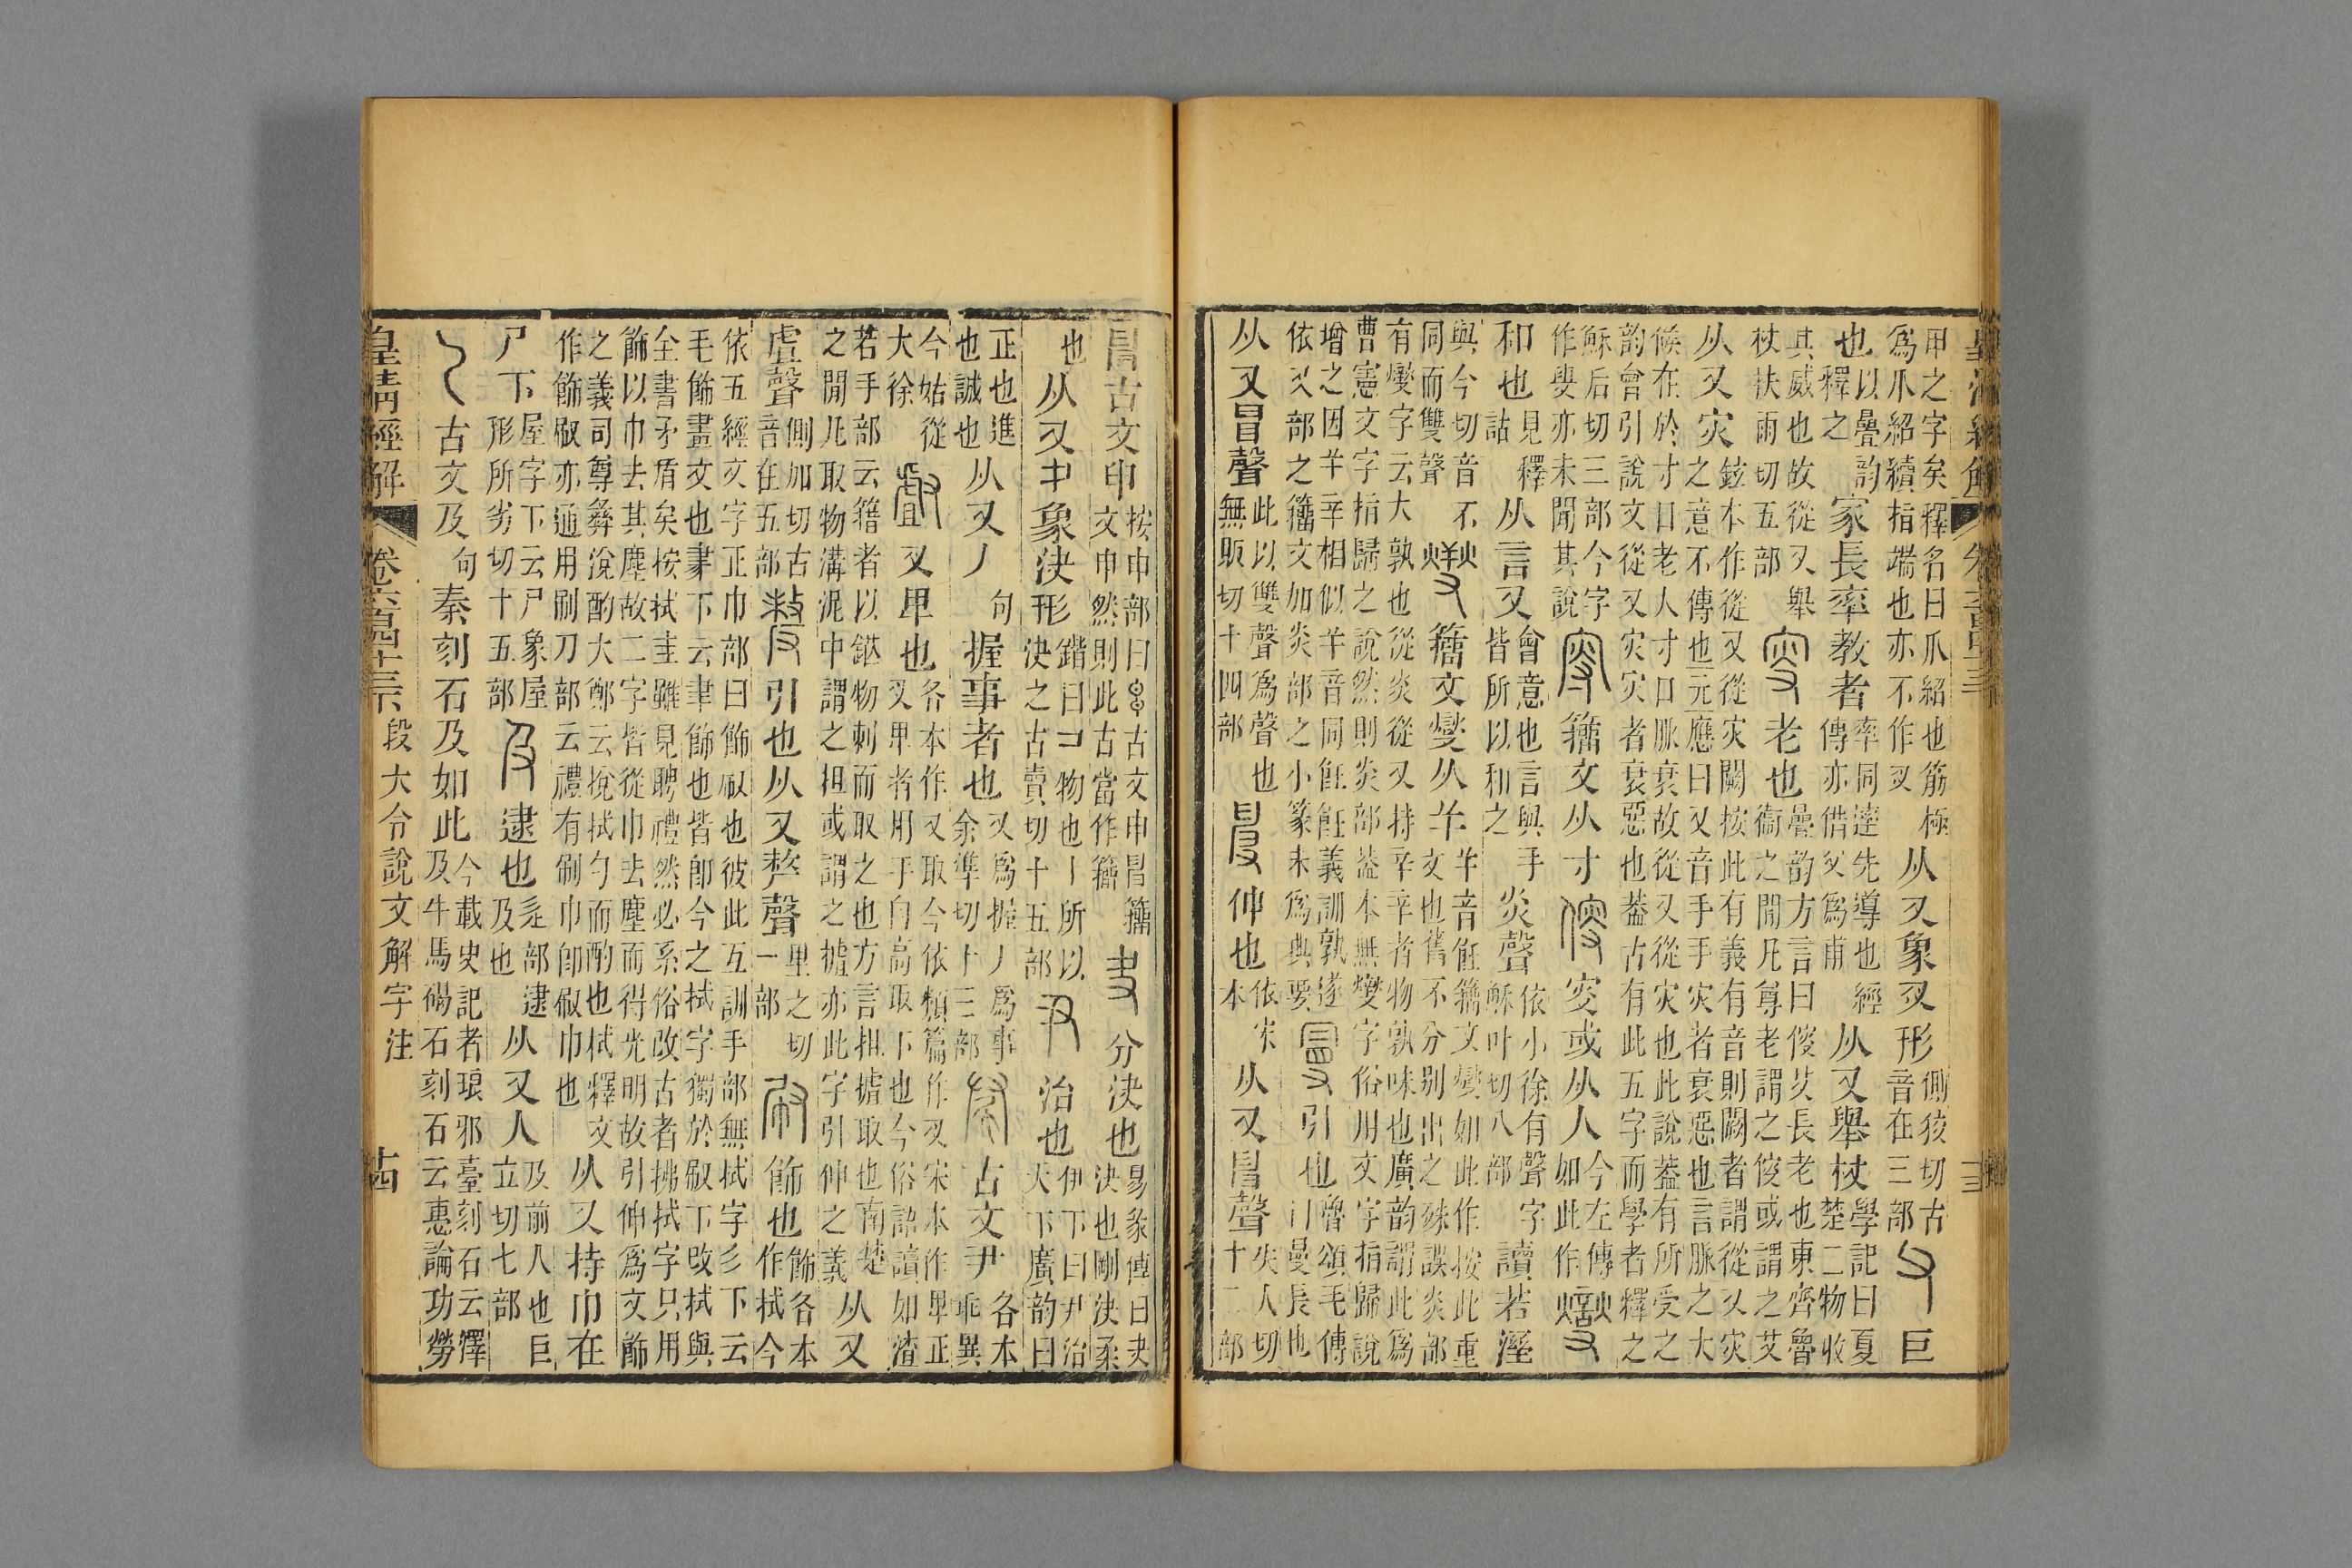 甲之字矣釋名曰爪紹也筋極爲爪紹續指端也亦不作叉从又象叉形側狡切古音在三部巨
也以疊韵釋之家長率教者率同先導也經傳亦借父爲甫从又舉杖學記曰夏楚二物收
其威也故從又舉杖扶雨切五部老也疊韵方言曰傁艾長老也東齊魯衞之閒凡尊老謂之傁或謂之艾
从又灾鉉本作從又從灾闕按此有義有音則闕者謂從又灾之意不傳也元應曰又音手手灾者衰惡也言脈之大
候在於寸口老人寸口脈衰故從又從灾也此說葢有所受之韵會引說文從又灾灾者衰惡也葢古有此五字而學者釋之
穌后切三部今字作叟亦未聞其說籒文从寸㝜或从人今左傳如此作
和也見釋詁从言又會意也言與手皆所以和之炎聲依小徐有聲字穌叶切八部讀若溼
與今切音不同而雙聲籒文燮从𢆉𢆉音飪籒文燮如此作按此重文也舊不分别出之殊誤炎部
有燮字云大孰也從炎從又持辛辛者物孰味也廣韵謂此爲曹憲文字指歸之說然則炎部葢本無燮字俗用文字指歸說
增之因𢆉辛相似𢆉音同飪飪義訓孰遂依又部之籒文如炎部之小篆未爲典要引也魯頌毛傳曰曼長也
从又冒聲此以雙聲爲聲也無販切十四部伸也依宋本从又𦥔聲失人切十二部
十三
𦥔古文申按申部曰古文申𦥔籒文申然則此古當作籒分決也易彖傳曰夬決也剛決柔
也从又㐄象決形鍇曰コ物也丨所以決之古賣切十五部治也伊下曰尹治天下廣韵曰
正也進也誠也从又丿句握事者也又爲握丿爲事余準切十三部古文尹各本乖異
今姑從大徐叉卑也各本作又取今依類篇作叉宋本作卑正叉卑者用手自高取下也今俗語讀如渣
若手部云籍者以物刺而取之也方言抯摣取也南楚之閒凡取物溝泥中謂之抯或謂之摣亦此字引伸之義从又
虘聲側加切古音在五部引也从又𠩺聲里之切一部飾也飾各本作拭今
依五經文字正巾部曰飾㕞也彼此互訓手部無拭字彡下云毛飾畫文也聿下云聿飾也皆卽今之拭字獨於㕞下改拭與
全書矛盾矣按拭圭雖見聘禮然必系俗改古者拂拭字只用飾以巾去其塵故二字皆從巾去塵而得光明故引伸爲文飾
之義司尊彝涗酌大鄭云挩拭勺而酌也拭釋文作飾㕞亦通用刷刀部云禮有刷巾卽㕞巾也从又持巾在
尸下屋字下云尸象屋形所劣切十五部逮也辵部逮及也从又人及前人也巨立切七部
乁古文及句秦刻石及如此今載史記者琅邪臺刻石云澤及牛馬碣石刻石云惠論功勞
皇清經解 卷六百四十三 段大令說文解字注 十四